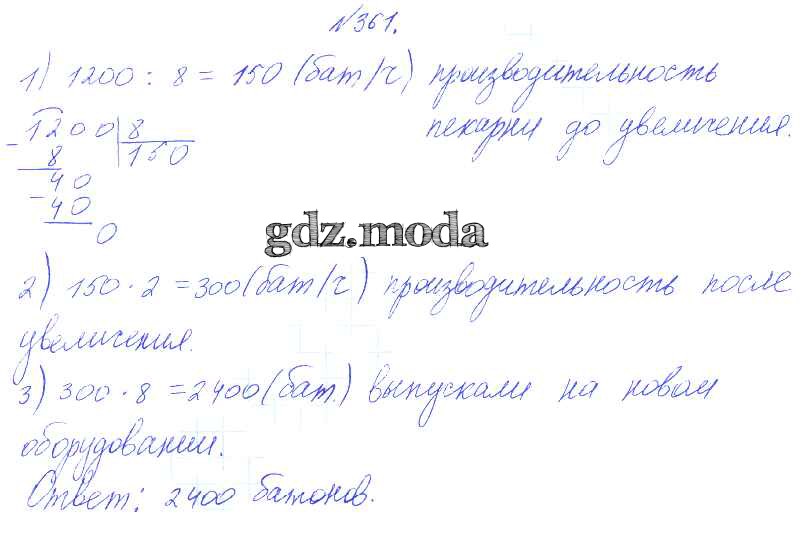 №361.
1) 1200 : 8 = 150 (бат/ч) производительность
пекарни до увеличения.
- 1200 | 8
8 | 150
- 40
40
0
gdz.moda
2) 150 · 2 = 300 (бат/ч) производительность после
увеличения.
3) 300 · 8 = 2400 (бат.) выпускали на новом
оборудовании.
Ответ: 2400 батонов.